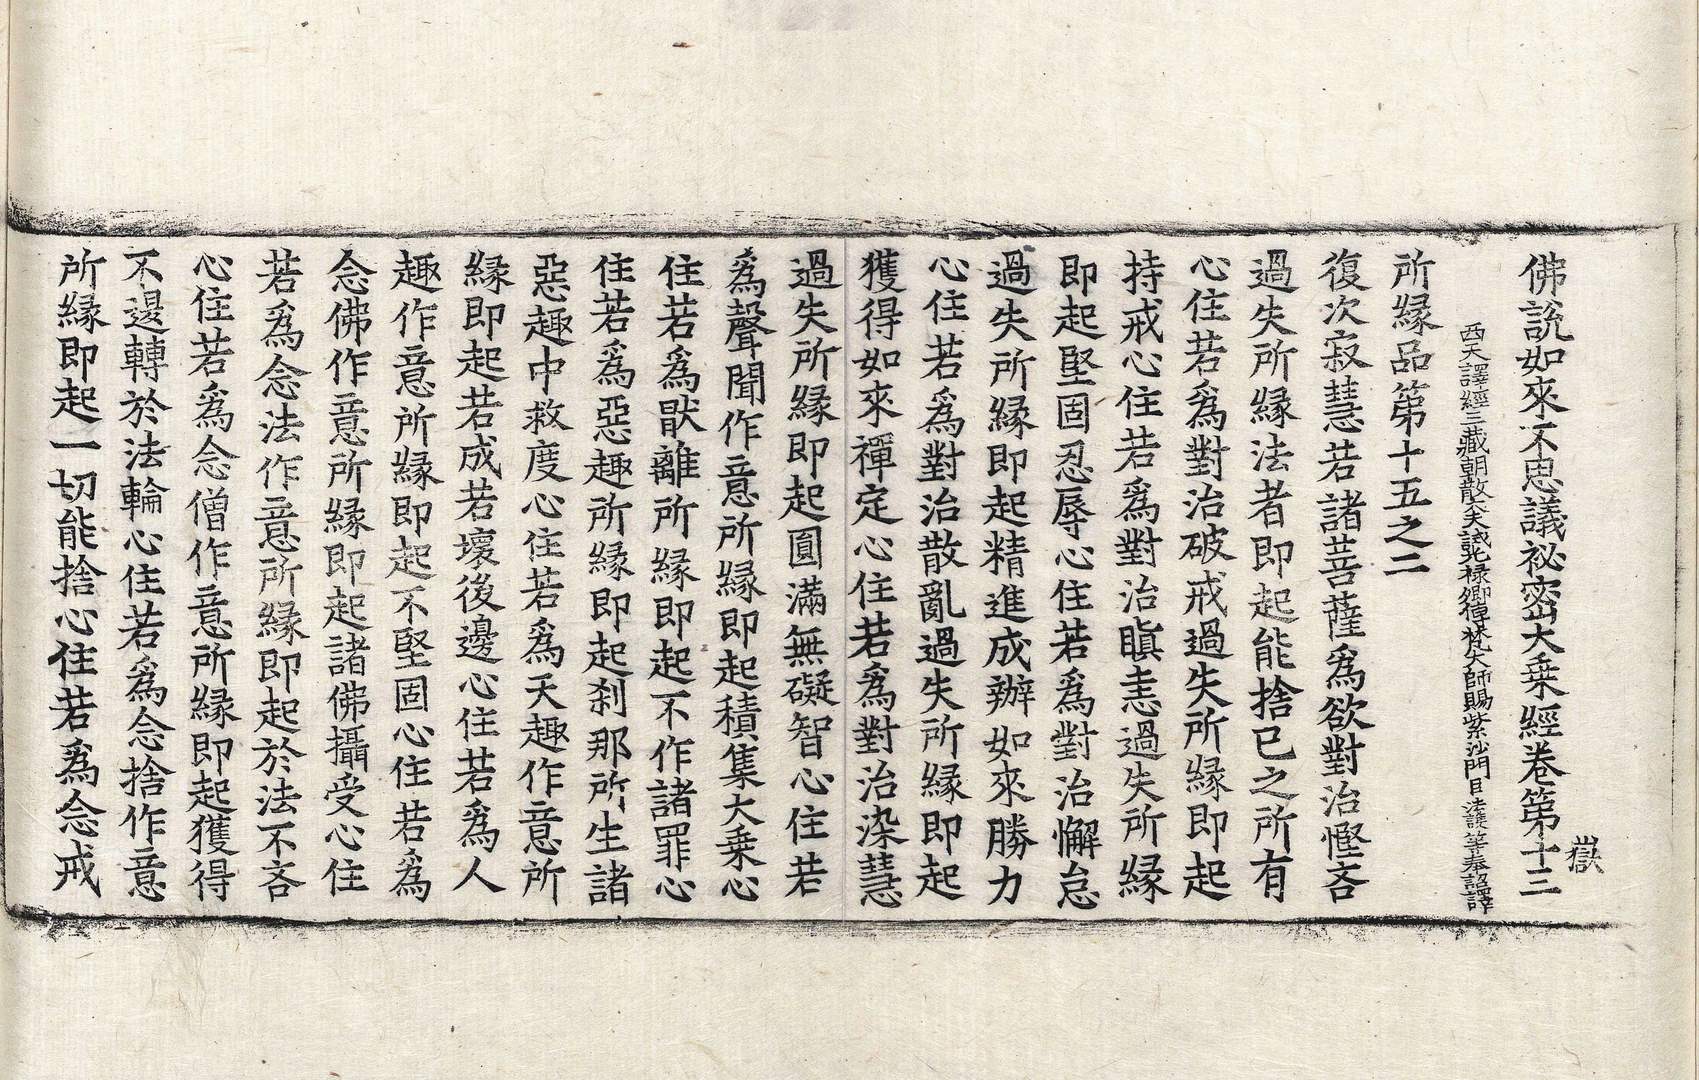 佛說如來不思議祕密大乗經卷第十三
獄
西天譯經三藏朝散大夫試光禄卿傳梵大師賜紫沙門臣法護等奉詔譯
所縁品第十五之二
復次寂慧若諸菩薩爲欲對治慳吝
過失所縁法者即起能捨已之所有
心住若爲對治破戒過失所縁即起
持戒心住若爲對治瞋恚過失所縁
即起堅固忍辱心住若爲對治懈怠
過失所縁即起精進成辦如來勝力
心住若爲對治散亂過失所縁即起
獲得如來禪定心住若爲對治染慧
過失所縁即起圓滿無礙智心住若
爲聲聞作意所縁即起積集大乗心
住若爲猒離所縁即起不作諸罪心
住若爲惡趣所縁即起刹那所生諸
惡趣中救度心住若爲天趣作意所
縁即起若成若壞後邊心住若爲人
趣作意所縁即起不堅固心住若爲
念佛作意所縁即起諸佛攝受心住
若爲念法作意所縁即起於法不吝
心住若爲念僧作意所縁即起獲得
不退轉於法輪心住若爲念捨作意
所縁即起一切能捨心住若爲念戒